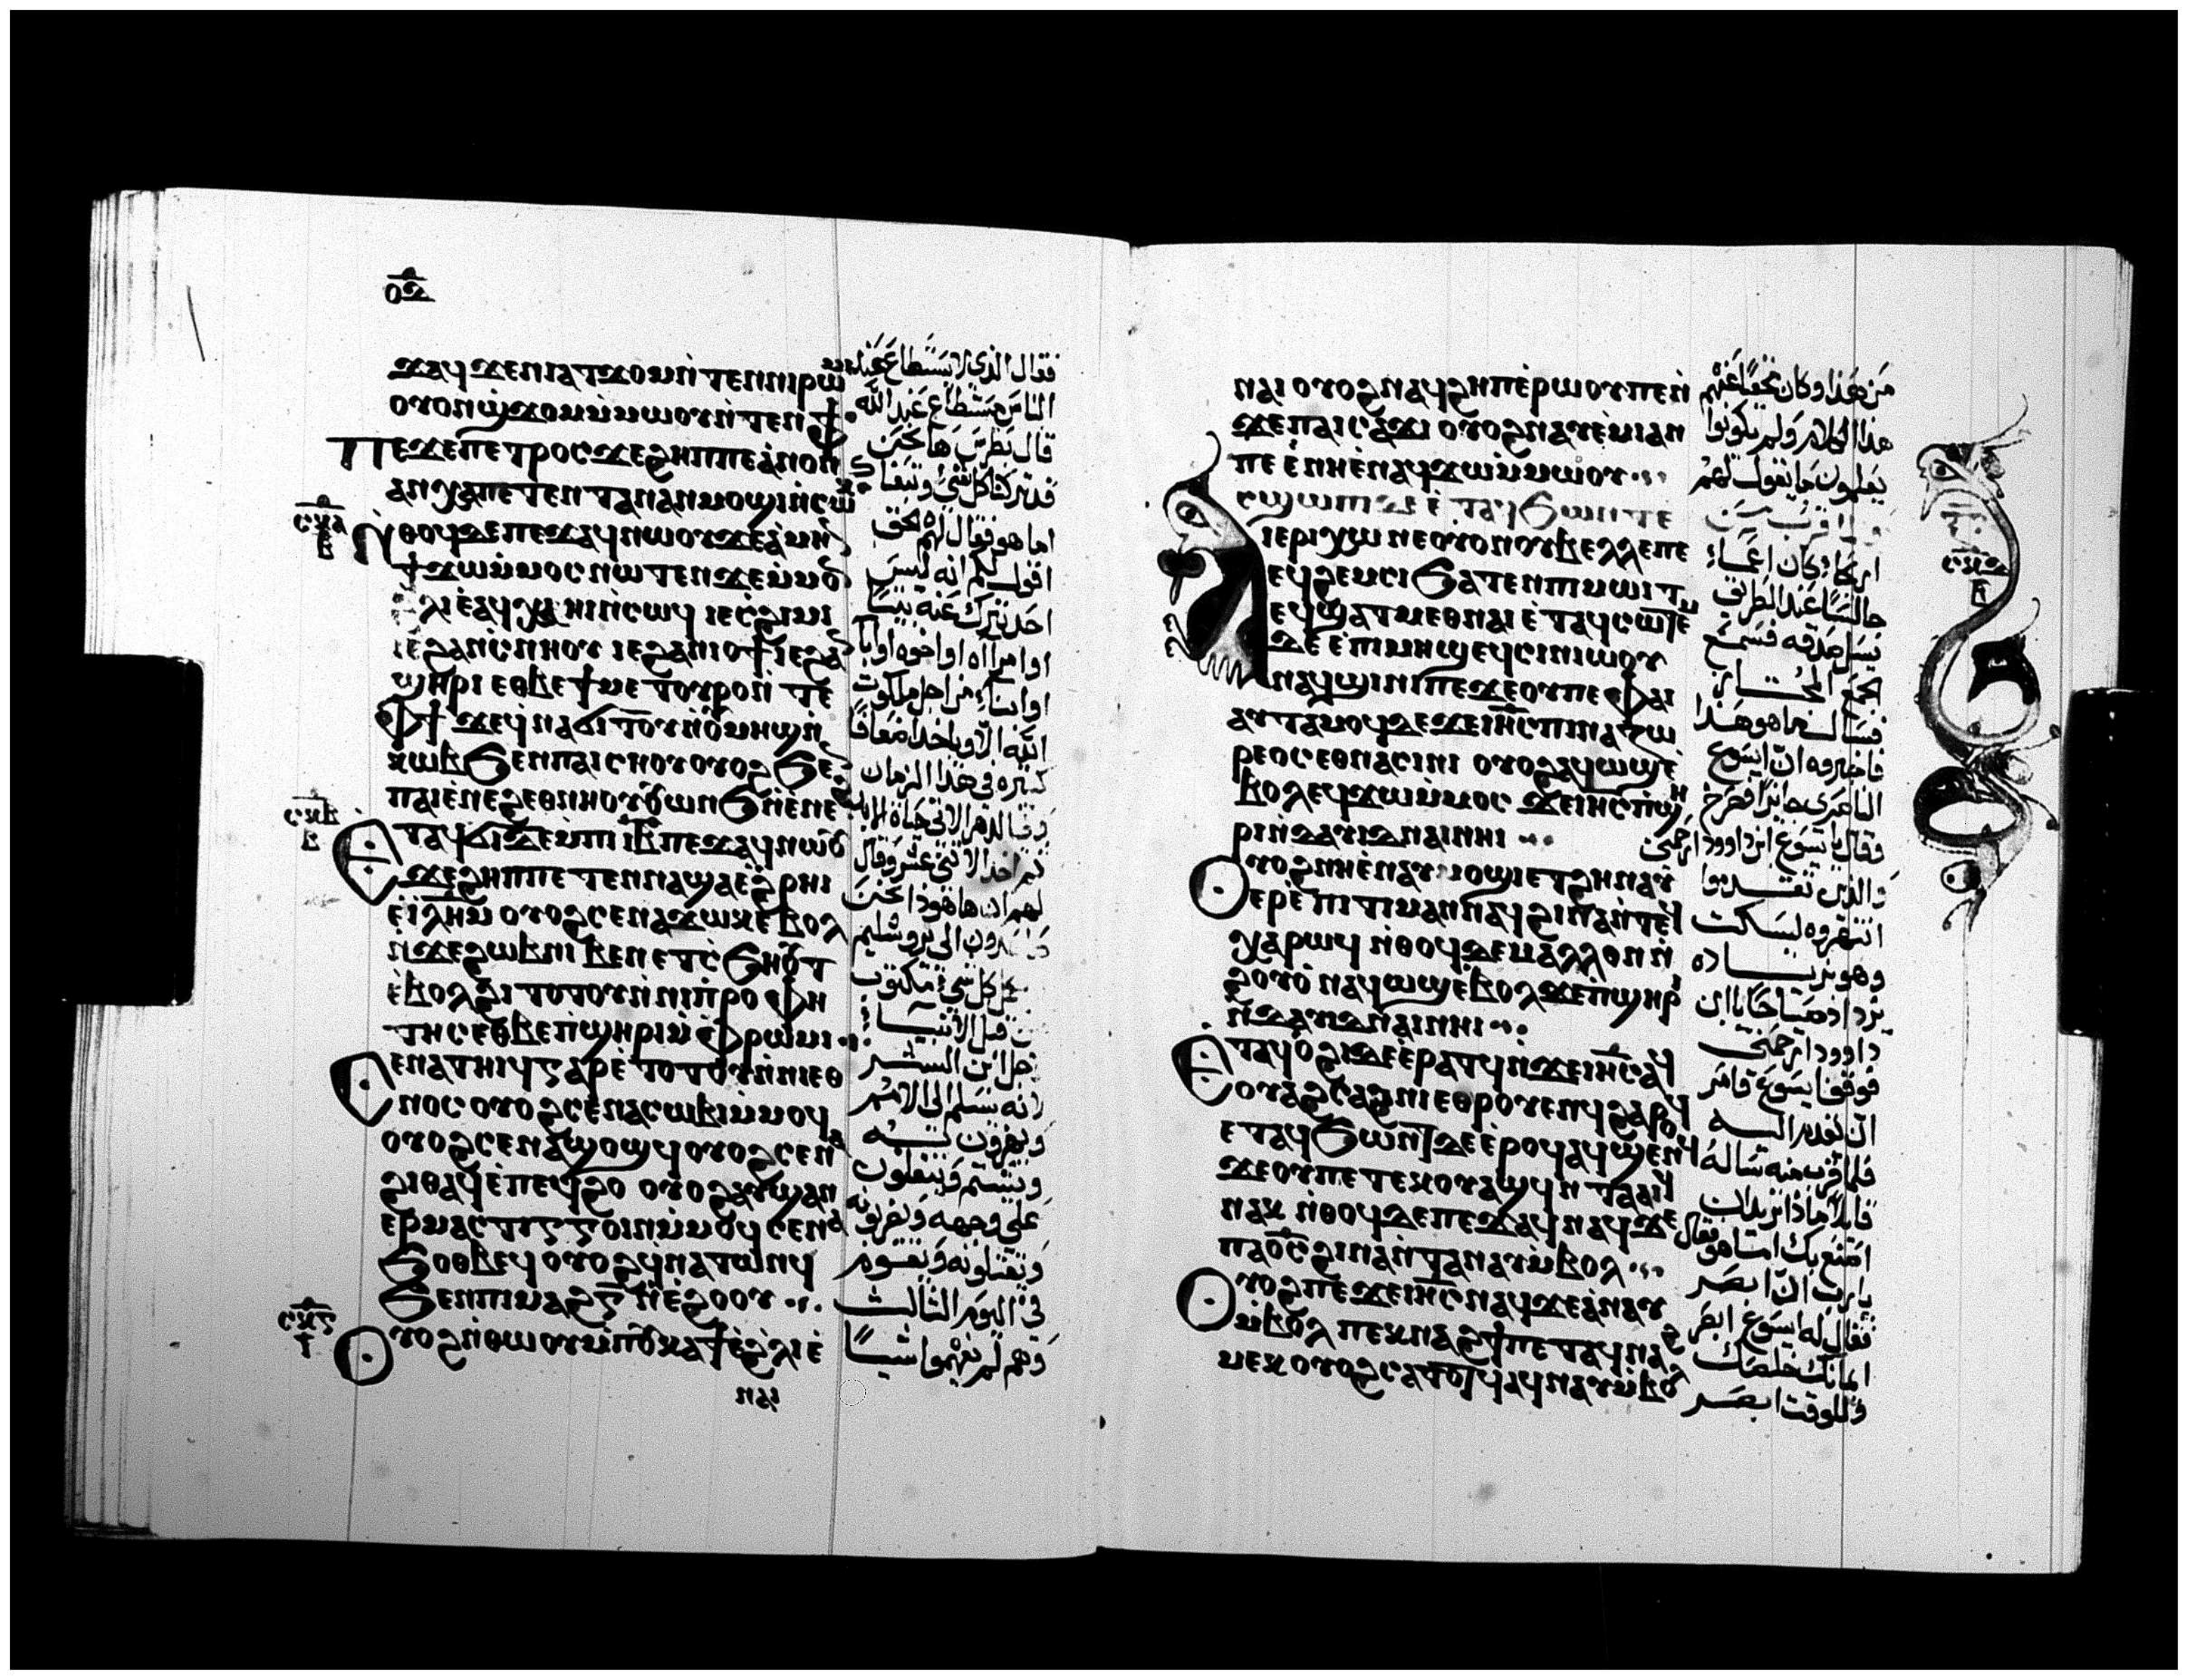 ⲟⲇ
ϫⲁϥ ϫⲉⲛⲓⲁⲧϫⲟⲙⲛ̀ⲧⲉⲛⲛⲓⲣⲱ
ⲟⲩⲟⲛϣ̀ϫⲟⲙⲙ̀ⲙⲱⲟⲩⲛ̀ⲧⲉⲛⲫϯ
ⲡⲉϫⲉⲡⲉⲧⲣⲟⲥϫⲉϩⲏⲡⲡⲉⲁ̀ⲛⲟⲛ
ⲁⲛⲭⲁⲡⲉⲧⲉⲛⲧⲁⲛⲁⲛⲙⲟϣⲓⲛ̀ⲥⲱ
ⲛ̀ⲑⲟϥⲇⲉⲡⲉϫⲁϥⲛⲱⲟⲩϫⲉⲁ̀ⲙⲏ
ϯϫⲱⲙ̀ⲙⲟⲥⲛⲱⲧⲉⲛϫⲉⲙ̀ⲙⲟ
ϩⲗⲓⲉ̀ⲁϥⲭⲁⲏⲓⲛ̀ⲥⲱϥ ⲓⲉⲥ̀ϩⲓⲙⲓ
ⲓⲉϩⲁⲛⲥ̀ⲛⲏⲟⲩ ⲓⲉϩⲁⲛⲓⲟϯⲓⲉϩⲁ
ϣⲏⲣⲓ ⲉⲑⲃⲉϯⲙⲉⲧⲟⲩⲣⲟⲛ̀ⲧⲉ
ⲫϯ ϫⲉϥ̀ⲛⲁϭⲓⲧⲟⲩⲛ̀ⲟⲩⲙⲏϣⲛ̀
ⲕⲱⲃϧⲉⲛⲡⲁⲓⲥⲏⲟⲩⲟⲩⲟϩϧⲉ
ⲡⲓⲉ̀ⲛⲉϩⲉⲑⲛⲏⲟⲩⲟⲩⲱⲛϧⲛ̀ⲉ̀ⲛⲉ
ⲉⲧⲁϥϭⲓⲇⲉⲙⲡⲓⲓⲃⲡⲉϫⲁϥⲛⲱⲟⲩ
ϫⲉϩⲏⲡⲡⲉⲧⲉⲛⲛⲁϣⲁⲉ̀ϩⲣⲏⲓ
ⲉ̀ⲓ̀ⲗⲏⲙ ⲟⲩⲟϩⲥⲉⲛⲁϫⲱⲕⲉ̀ⲃⲟⲗ
ⲛ̀ϫⲉϩⲱⲃⲛⲓⲃⲉⲛⲉⲧⲥ̀ϧⲏⲟⲩⲧ
ⲉ̀ⲃⲟⲗϩⲓⲧⲟⲧⲟⲩⲛ̀ⲛⲓⲡ̀ⲣⲟⲫⲏ
ⲧⲏⲥⲉⲑⲃⲉⲡ̀ϣⲏⲣⲓⲙ̀ⲫ̀ⲣⲱⲙⲓ
ⲥⲉⲛⲁⲧⲏⲓϥⲅⲁⲣⲉ̀ⲧⲟⲧⲟⲩⲛ̀ⲛⲓⲉⲑ
ⲛⲟⲥ ⲟⲩⲟϩⲥⲉⲛⲁⲥⲱⲃⲓⲙ̀ⲙⲟϥ
ⲟⲩⲟϩⲥⲉⲛⲁϣⲟϣϥⲟⲩⲟϩⲥⲉⲛ
ϩⲓⲑⲁϥⲉ̀ⲡⲉϥϩⲟ ⲟⲩⲟϩⲁⲩϣⲁⲛ
ⲉⲣⲙⲁⲥⲧⲓⲅⲅⲟⲓⲛⲙ̀ⲙⲟϥⲥⲉⲛⲁ
ϧⲟⲑⲃⲉϥⲟⲩⲟϩϥ̀ⲛⲁⲧⲱⲛϥ
ϧⲉⲛⲡⲓⲙⲁϩⲅ ⲛ̀ⲉ̀ϩⲟⲟⲩ
ⲟⲩⲟϩⲛ̀ⲑⲱⲟⲩⲙ̀ⲡⲟⲩⲕⲁϯⲉ̀ϩ̀ⲗⲓⲉ̀
ⲛⲁⲓ
فقال الذي لا يستطاع عند
الناس مستطاع عند الله
قال بطرس ها نحن
قد تركنا كل شي وتبعناك
اما هو فقال لهم الحق
اقول لكم انه ليس
احد يترك عنه بيتا
او امراه او اخوه او ابا
او ابناء من اجل ملكوت
الله الا وياخذ اضعافا
كثيره في هذا الزمان
لهم ها هوذا نحن
الى يروشليم
كل شي مكتوب
من قبل الانبيا
لاجل ابن البشر
لانه يسلم الى الامم
ويهزون به
ويشتم ويتفلون
على وجهه ويضربونه
ويقتلونه ويقوم
في اليوم الثالث
وهم لم يفهموا شيئا
ⲛⲁⲓ ⲟⲩⲟϩⲛⲁϥϩⲏⲡⲉ̀ⲣⲱⲟⲩⲡⲉⲛ̀
ϫⲉⲡⲁⲓⲥⲁ̀ϫⲓ ⲟⲩⲟϩⲛⲁⲩⲉ̀ⲙⲓⲁⲛ
ⲡⲉ ⲉ̀ⲛⲏⲉ̀ⲛⲁϥϫⲱⲙ̀ⲙⲱⲟⲩ
ⲥϣⲱⲡⲓ ⲇⲉ ⲉ̀ⲧⲁϥϧⲱⲛⲧⲉ
ⲓⲉⲣⲓⲭⲱ ⲛⲉⲟⲩⲟⲛⲟⲩⲃⲉⲗⲗⲉⲡⲉ
ⲉϥϩⲉⲙⲥⲓϧⲁⲧⲉⲛⲡⲓⲙⲱⲓⲧ
ⲉϥϣⲁⲧⲙⲉⲑⲛⲁⲓ ⲉ̀ⲧⲁϥⲥⲱⲧⲉⲙ
ⲇⲉ ⲉ̀ⲡⲓⲙⲏϣⲉϥⲥⲓⲛⲓⲱⲟⲩ
ⲛⲁϥϣⲓⲛⲓⲡⲉϫⲉⲟⲩⲡⲉⲫⲁⲓ
ⲁⲩⲧⲁⲙⲟϥⲇⲉϫⲉⲓⲏⲥⲡⲓⲛⲁⲍⲱ
ⲣⲉⲟⲥⲉⲑⲛⲁⲥⲓⲛⲓ ⲟⲩⲟϩⲁϥⲱϣⲉ̀
ⲃⲟⲗⲉϥϫⲱⲙ̀ⲙⲟⲥ ϫⲉⲓⲏⲥⲡ̀ϣⲏ
ⲣⲓⲛ̀ⲇⲁⲩⲓⲇⲛⲁⲓⲛⲏⲓ
ⲟⲩⲟϩⲛⲏⲉ̀ⲛⲁⲩⲙⲟϣⲓⲉⲧϩⲏⲛⲁⲩ
ⲉⲣⲉ̀ⲡⲓⲧⲓⲙⲁⲛⲛⲁϥϩⲓⲛⲁⲛ̀ⲧⲉϥ
ⲭⲁⲣⲱϥ ⲛ̀ⲑⲟϥⲇⲉⲙⲁⲗⲗⲟⲛⲛ̀
ϩⲟⲩⲟ̀ ⲛⲁϥⲱϣⲉ̀ⲃⲟⲗϫⲉⲡϣⲏⲣ
ⲛ̀ⲇⲁⲩⲓⲇⲛⲁⲓⲛⲏⲓ
ⲉⲧⲁϥⲟ̀ϩⲓⲇⲉⲉ̀ⲣⲁⲧϥⲛ̀ϫⲉⲓⲏⲥⲁϥ
ⲟⲩⲁϩⲥⲁϩⲛⲓⲉⲑⲣⲟⲩⲉⲛϥϩⲁⲣⲟϥ
ⲉⲧⲁϥϧⲱⲛⲧⲇⲉⲉ̀ⲣⲟϥⲁϥϣⲉⲛϥ
ϫⲉⲟⲩⲡⲉⲧⲉⲕⲟⲩⲁϣϥⲛ̀ⲧⲁⲁⲓϥ
ⲛⲁⲕ ⲛ̀ⲑⲟϥⲇⲉⲡⲉϫⲁϥⲛⲁϥϫⲉ
ⲡⲁⲟ̅ⲥ̅ϩⲓⲛⲁⲛ̀ⲧⲁⲛⲁⲩⲙ̀ⲃⲟⲗ
ⲟⲩⲟϩⲡⲉϫⲉⲓⲏⲥⲛⲁϥϫⲉⲁ̀ⲛⲁⲩ
ⲙ̀ⲃⲟⲗ ⲡⲉⲕⲛⲁϩϯⲡⲉⲧⲁϥⲛⲁϩ
ⲙⲉⲕ ⲟⲩⲟϩⲥⲁⲧⲟⲧϥⲁϥⲛⲁⲩⲙ̀ⲃⲟ
من هذا وكان مخفيا عنهم
هذا الكلام ولم يكونوا
يعلمون ما يقول لهم
ولما قرب من
اريحا وكان اعما
جالسا عند الطريق
يسل صدقه فسمع
الجمع المجتاز
فسال ما هو هذا
فاخبروه ان ايسوع
الناصري جايز فصرخ
وقال يا يسوع ابن داوود ارحمني
والذين تقدموا
انتهروه ليسكت
وهو بزياده
يزداد صياحا يا ابن
داوود ارحمني
فوقف يسوع وامر
ان يقدم اليه
فلما قرب منه ساله
قايلا ماذا تريد ان
اصنع بك اما هو فقال
يا رب ان ابصر
فقال له ايسوع ابصر
ايمانك خلصك
وللوقت ابصر